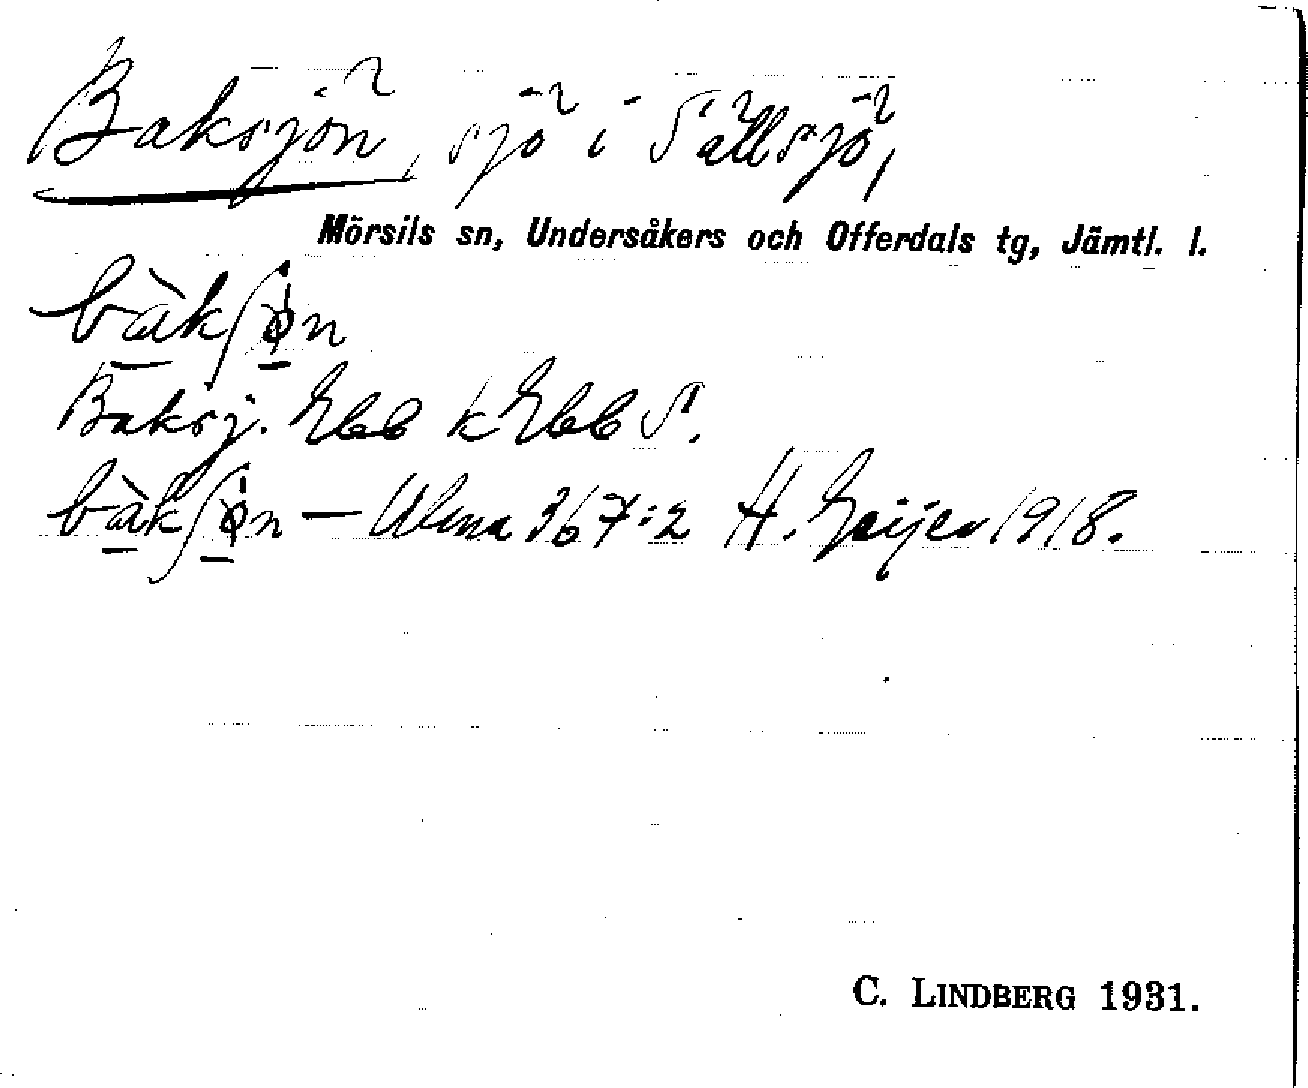 Baksjön, sjö i Sällsjö,
Mörsils sn, Undersåkers och Offerdals tg, Jämtl. l.
bàkʃøn
Baksj. Ebb k Ebb S.
bàkʃøn — Ulma 367:2 H. Geijer 1918.
C. LINDBERG 1931.